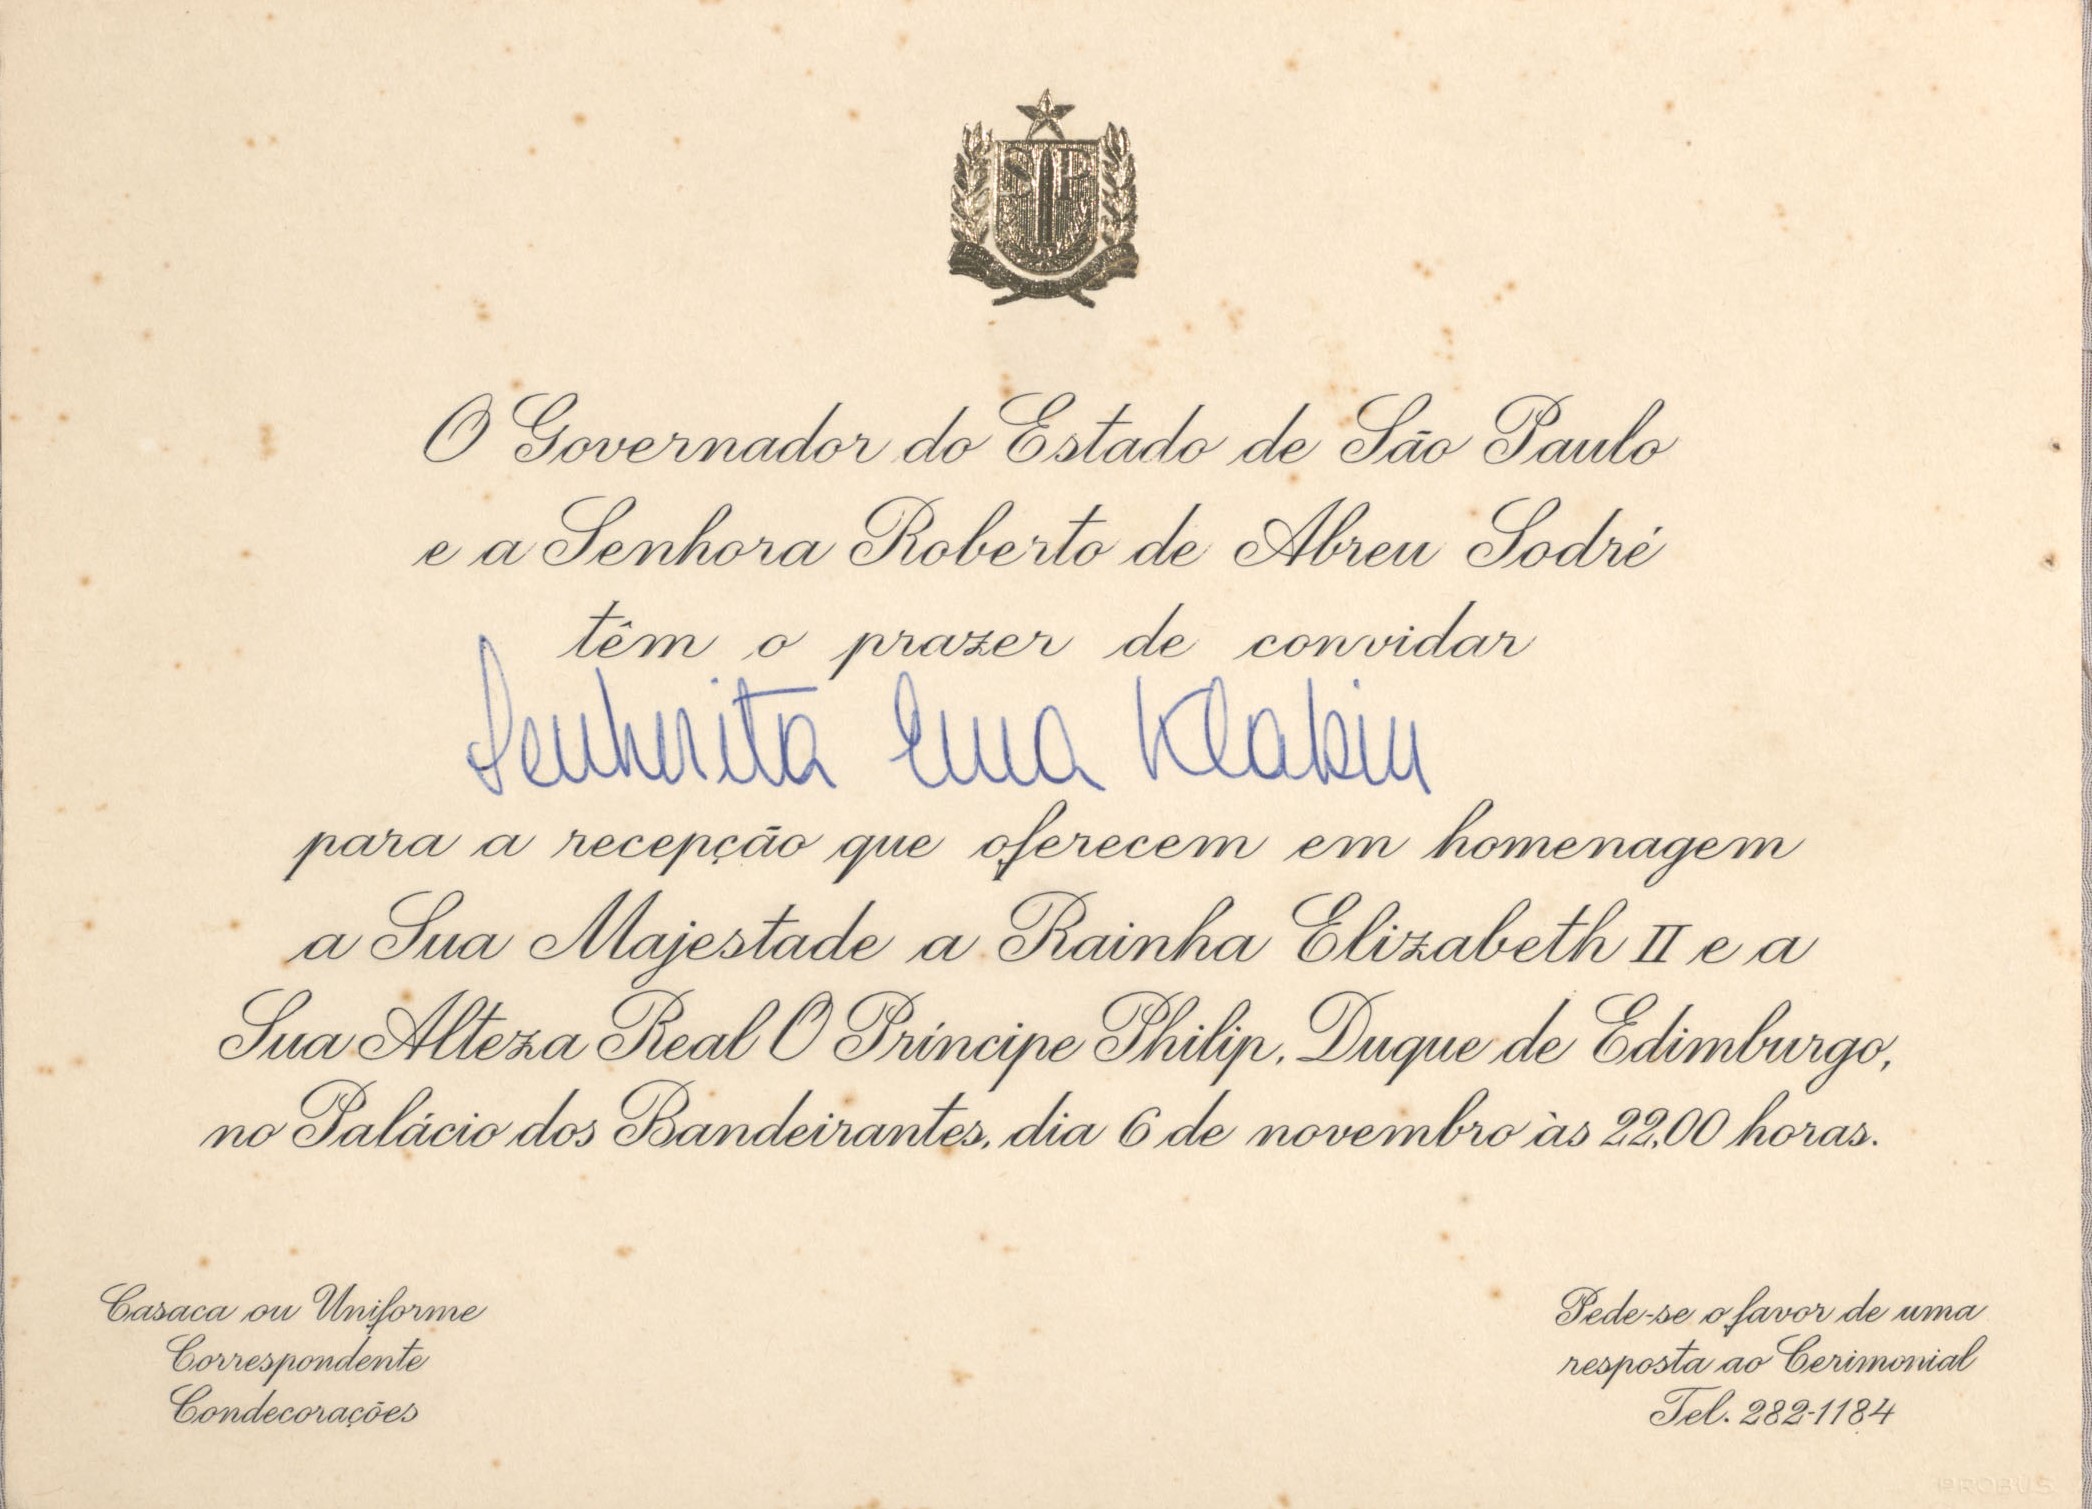 SP
O Governador do Estado de São Paulo
e a Senhora Roberto de Abreu Sodré
têm o prazer de convidar
Senhorita Ema Klabin
para a recepção que oferecem em homenagem
a Sua Majestade a Rainha Elizabeth II e a
Sua Alteza Real O Príncipe Philip, Duque de Edimburgo,
no Palácio dos Bandeirantes, dia 6 de novembro às 22,00 horas.
Casaca ou Uniforme
Correspondente
Condecorações
Pede-se o favor de uma
resposta ao Cerimonial
Tel. 282-1184
PROBUS